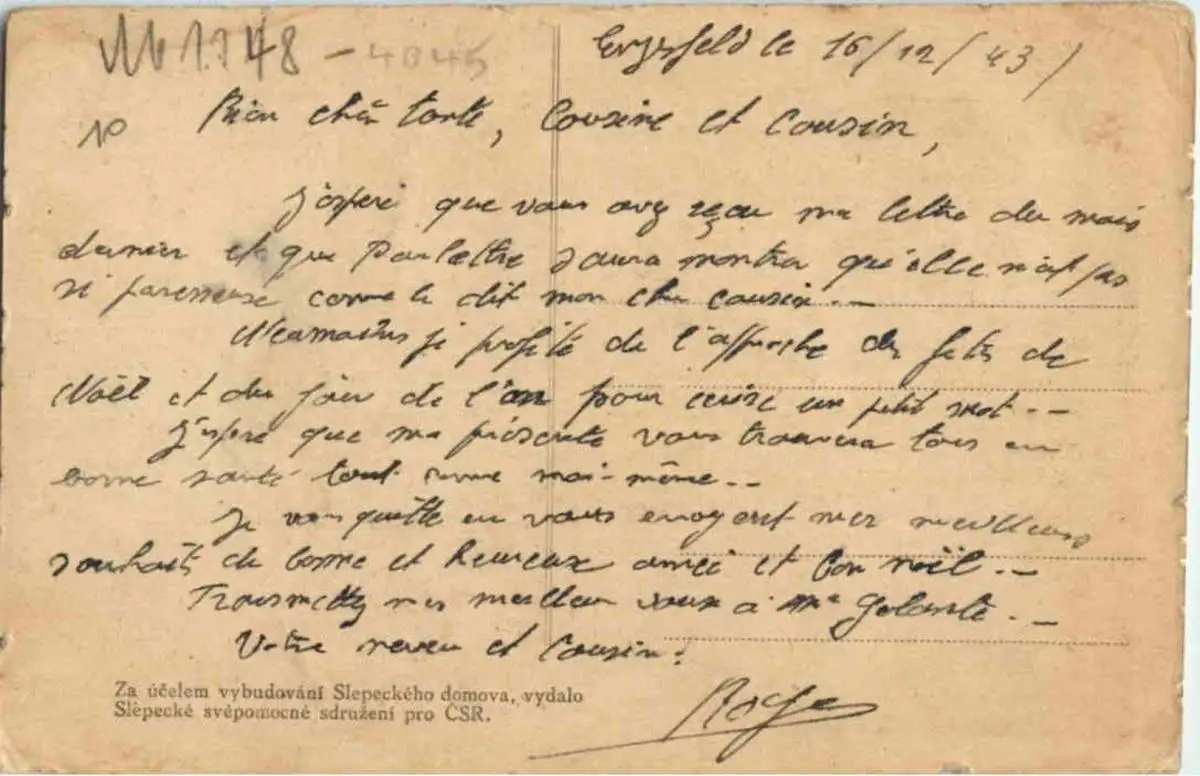 1748 - 4045
le 16/12/43/
N°
Bien chèr tante, Cousine et Cousin,
J'espere que vous avez reçu ma lettre du mois
dernier et que Paulette saura montrer qu'elle n'est pas
si paresseuse comme le dit mon cher cousin. --
Neamoins je profite de l'approche des fetes de
Noël et du jour de l'an pour ecrire un petit mot. --
J'espere que ma présente vous trouvera tous en
bonne santé tout comme moi-même. --
Je vous quitte en vous envoyant mes meilleurs
souhaits de bonne et heureuse année et bon noël. --
Transmettez mes meilleur voeux à Mme. --
Votre neveu et Cousin.
Za účelem vybudování Slepeckého domova, vydalo
Slepecké svépomocné sdružení pro ČSR.
Roger